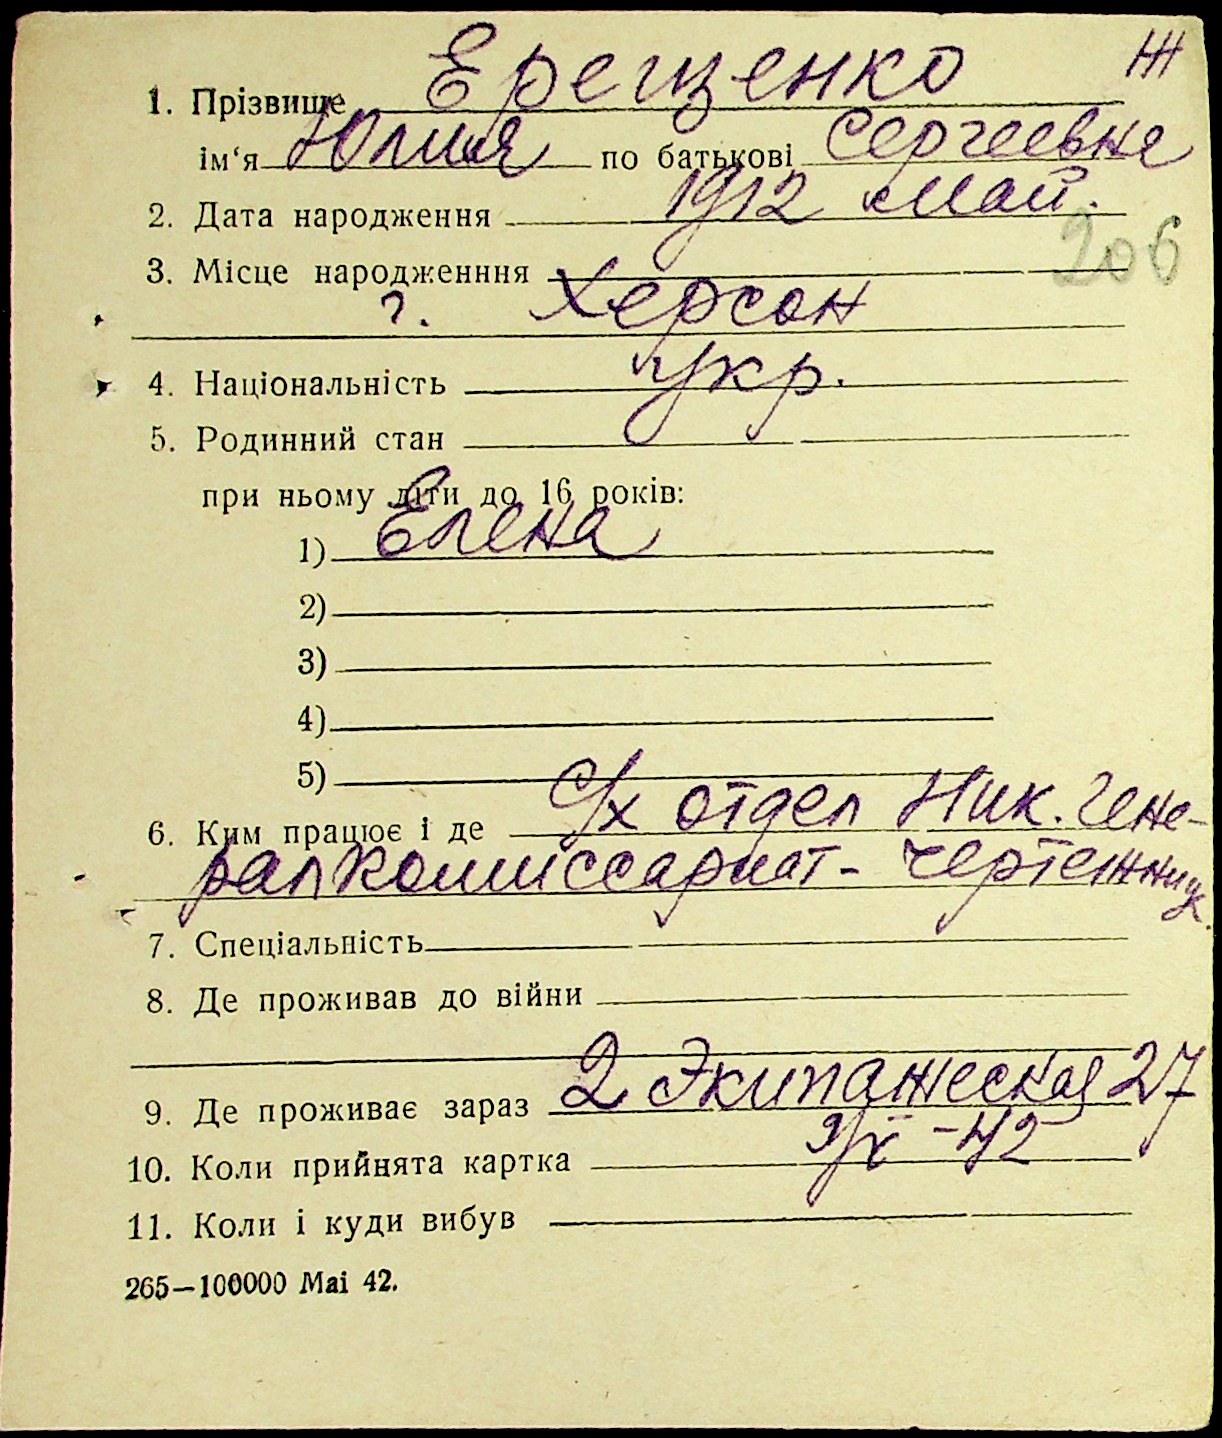 Ж
1. Прізвище Ерещенко
ім‘я Юлия по батькові Сергеевна
2. Дата народження 1912 май.
206
3. Місце народженння
г. Херсон
4. Національність укр.
5. Родинний стан
при ньому діти до 16 років:
1) Елена
2)
3)
4)
5)
6. Ким працює і де с/х отдел Ник. Гене-
ралкомиссариат - чертежниц.
7. Спеціальність
8. Де проживав до війни
9. Де проживає зараз 2 Экипажеская 27
10. Коли прийнята картка 9/X - 42
11. Коли і куди вибув
265—100000 Mai 42.